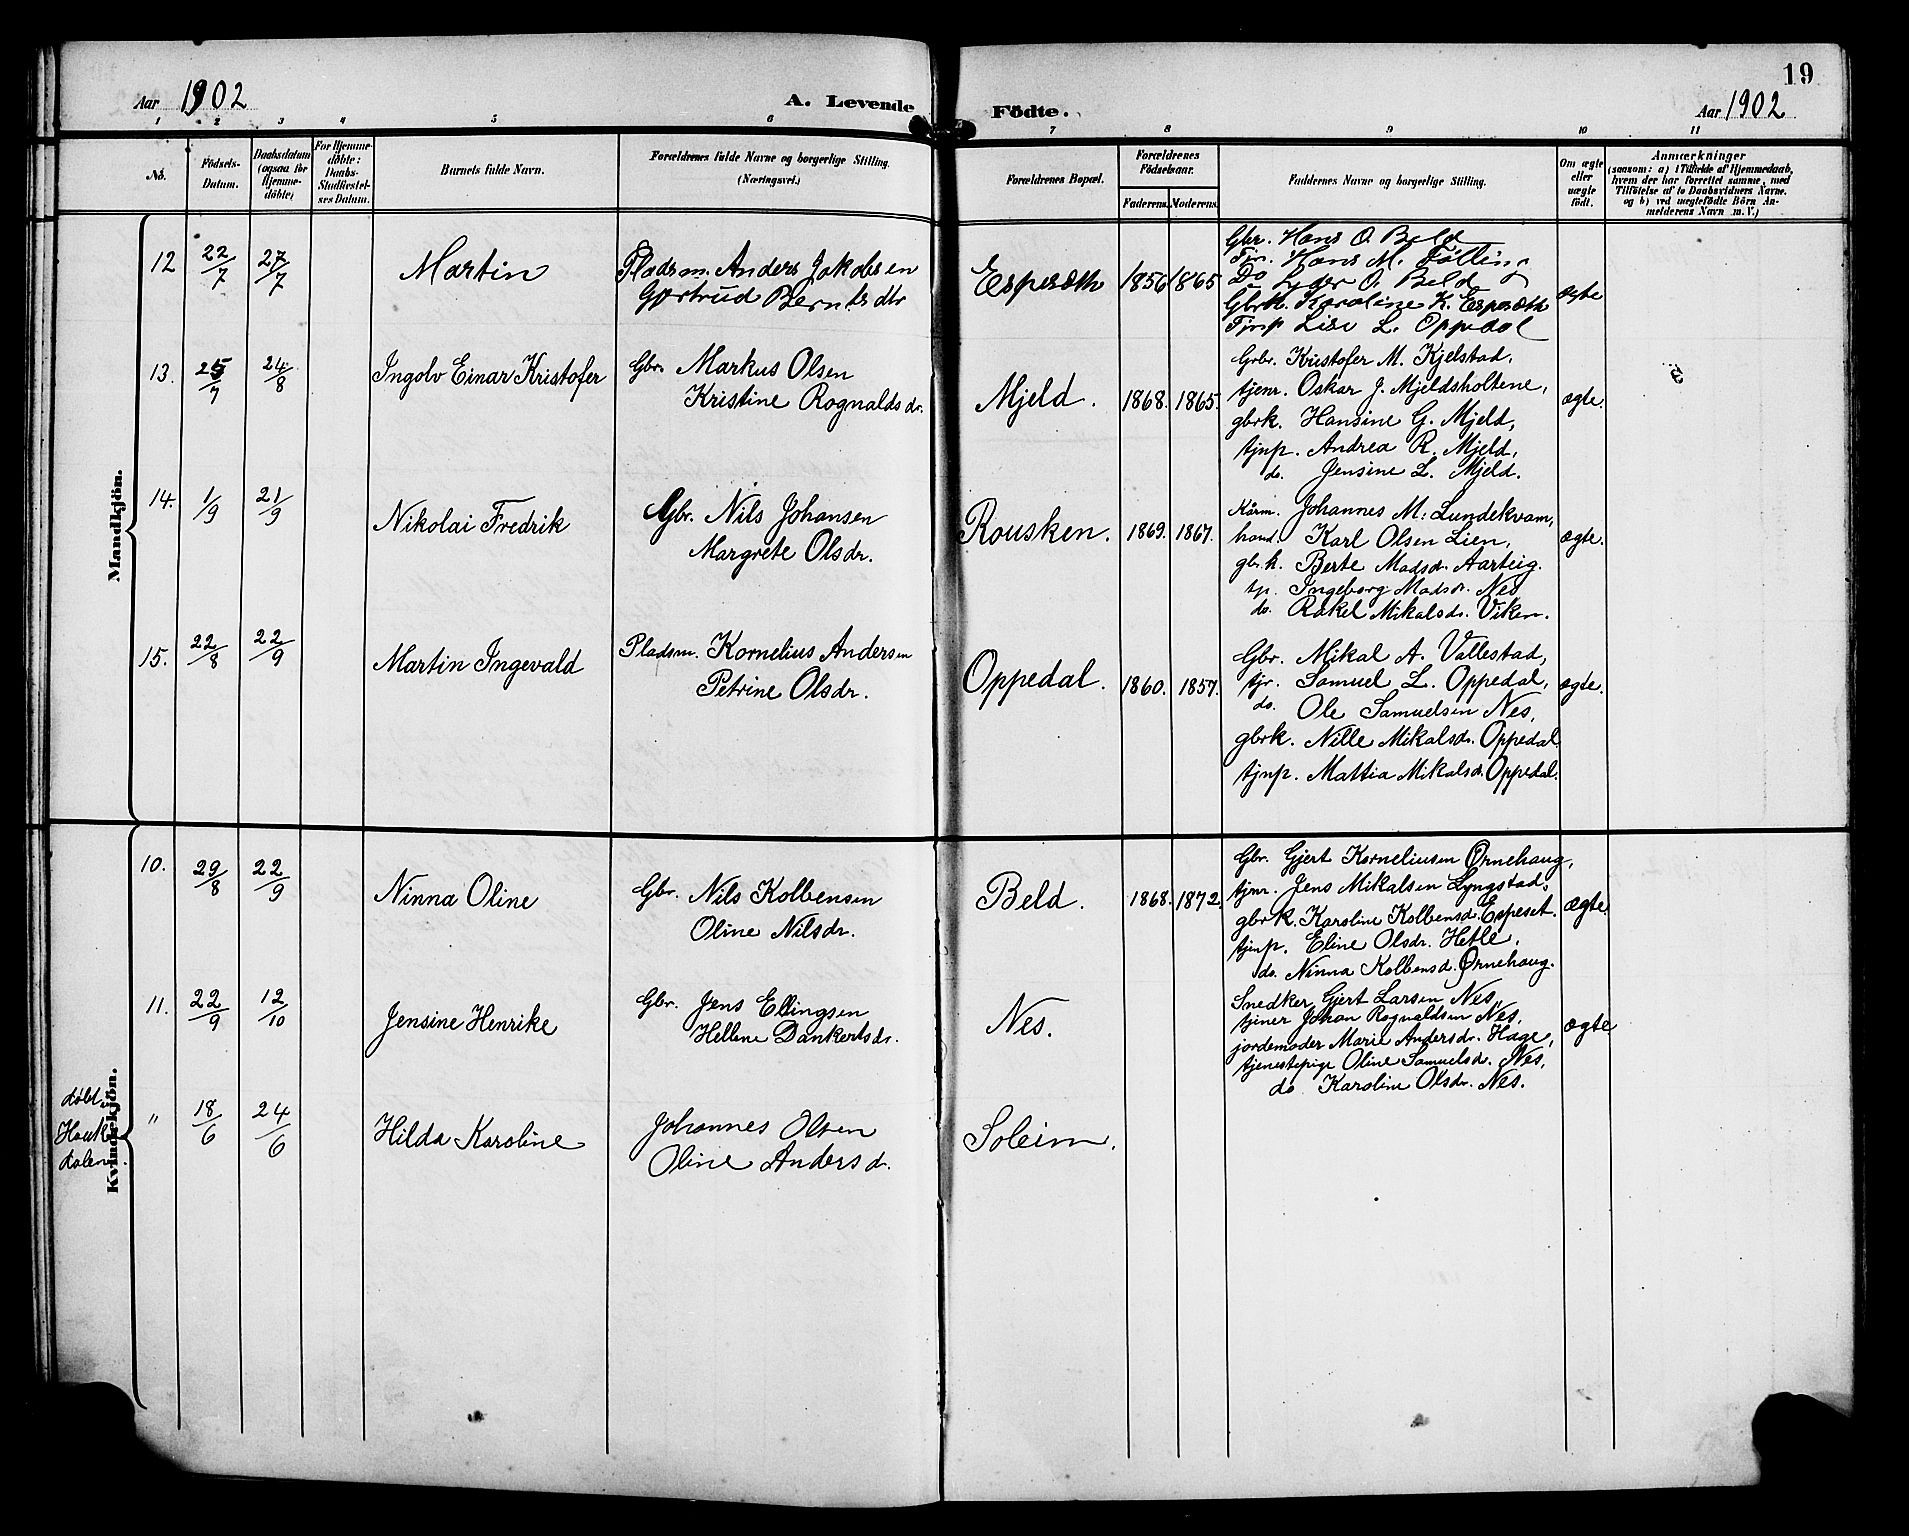 19
Aar 1902
A. Levende Födte.
Aar 1902
1 2 3 4 5 6 7 8 9 10 11
No.
Födsels-
Datum.
Daabsdatum
(ogsaa for
Hjemme-
döbte)
For Hjemme-
döbte:
Daabs-
Stadfæstel-
ses Datum.
Barnets fulde Navn.
Forældrenes fulde Navne og borgerlige Stilling.
(Næringsvei.)
Forældrenes Bopæl.
Forældrenes
Födselsaar.
Faderens. Moderens.
Faddernes Navne og borgerlige Stilling.
Om ægte
eller
uægte
födt.
Anmærkninger
(saasom: a) i Tilfælde af Hjemmedaab,
hvem der har forrettet samme, med
Tilföielse af to Daabsvidners Navne.
og b) ved uægtefödte Börn An-
melderens Navn m. V.)
Mandkjön.
12 22/7 27/7 Martin
Pladsm. Anders Jakobsen
Gjertrud Berntsdtr
Espesæth 1856 1865
Gbr. Hans O. Beld
Tjn. Hans M. Følling
Do Lyder O. Beld
Gbrk. Karoline K. Espesæth
Tjnp Lise L. Oppedal
ægte
13. 25/7 24/8 Ingolv Einar Kristofer
Gbr. Markus Olsen
Kristine Rognaldsdr.
Mjeld. 1868. 1865.
Grbr. Kristofer M. Kjelstad,
tjenr. Oskar J. Mjeldsholtene,
gbrk. Hansine G. Mjeld,
tjnp. Andrea R. Mjeld,
do. Jensine L. Mjeld.
ægte.
14. 1/9 21/9 Nikolai Fredrik
Gbr. Nils Johansen
Margrete Olsdr.
Rousken. 1869. 1867.
Kårm. Johannes M. Lundekvam,
hand. Karl Olsen Lien,
gbr.k. Berte Madsdr. Aarteig.
tp. Ingeborg Madsdr. Nes
do. Rakel Mikalsdr. Viken.
ægte.
15. 22/8 22/9 Martin Ingevald
Pladsm. Kornelius Andersen
Petrine Olsdr.
Oppedal. 1860. 1857.
Gbr. Mikal A. Vallestad,
tjr. Samuel L. Oppedal,
do. Ole Samuelsen Nes,
gbrk. Nille Mikalsdr. Oppedal
tjnp. Mattia Mikalsd. Oppedal.
ægte.
Kvindekjön.
10. 29/8 22/9 Ninna Oline
Gbr. Nils Kolbensen
Oline Nilsdr.
Beld. 1868. 1872.
Gbr. Gjert Korneliusen Ørnehaug,
tjnr. Jens Mikalsen Lyngstad,
gbrk. Karoline Kolbensd. Espeset.
tjnp. Eline Olsdr. Hetle,
do. Ninna Kolbensd. Ørnehaug.
ægte.
11. 22/9 12/10 Jensine Henrike
Gbr. Jens Ellingsen
Hellene Dankertsdr.
Nes.
Snedker Gjert Larsen Nes,
tjener Johan Rognaldsen Nes.
jordemoder Marie Andersdr. Hage,
tjenestepige Oline Samuelsd. Nes,
do Karoline Olsdr. Nes.
ægte
døbt i
Hauk-
dalen.
" 18/6 24/6 Hilda Karoline
Johannes Olsen
Oline Andersd.
Soleim.